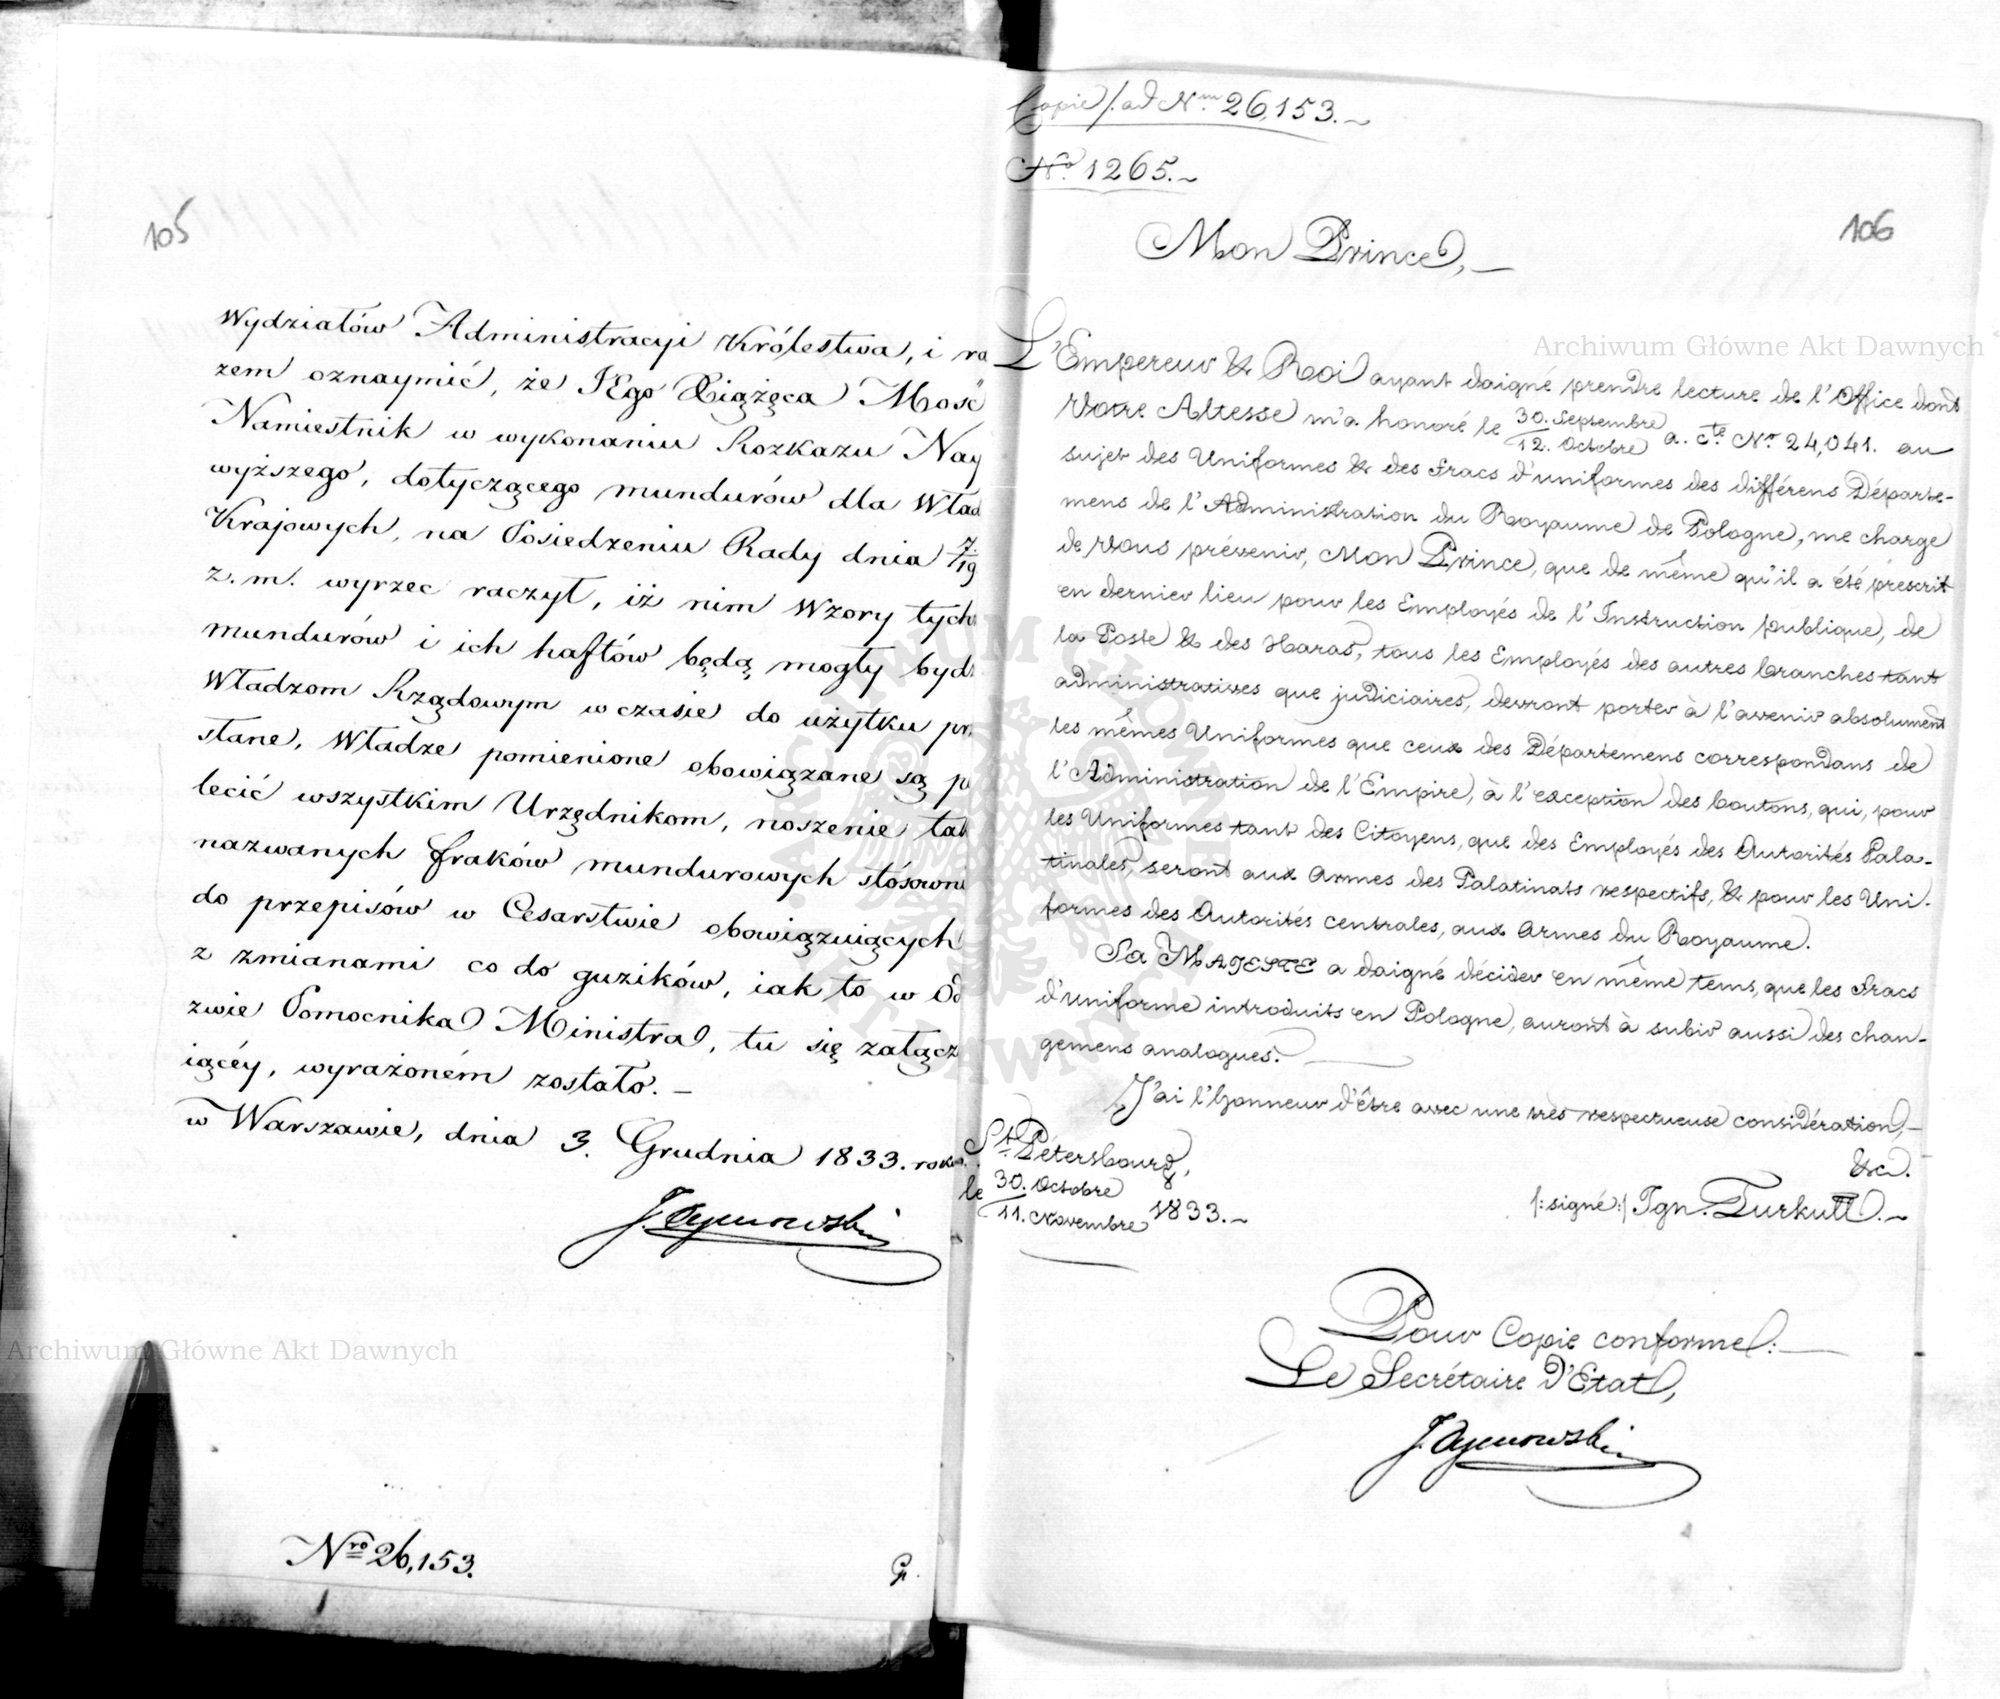 105
Wydziałów Administracyi Królestwa, i ra
zem oznaymić, że JEgo Xiążęca Mość
Namiestnik w wykonaniu Rozkazu Nay
wyższego, dotyczącego mundurów dla Wład
Krajowych, na Posiedzeniu Rady dnia 7/19
z. m. wyrzec raczył, iż nim Wzory tych
mundurów i ich haftów będą mogły bydź
Władzom Rządowym w czasie do użytku prze
słane, Władze pomienione obowiązane są po
lecić wszystkim Urzędnikom, noszenie tak
nazwanych fraków mundurowych stósowni
do przepisów w Cesarstwie obowiązuiących
z zmianami co do guzików, iak to w Od
zwie Pomocnika Ministra, tu się załącz
iącéy, wyrażoném zostało. –
w Warszawie, dnia 3. Grudnia 1833. roku.
J. Tymowski
Nro 26,153.
Copie /. ad Nrum 26,153. ~
No 1265. ~
106
Mon Prince, —
L'Empereur & Roi ayant daigné prendre lecture de l'Office dont
Votre Altesse m'a honoré le 30. Septembre/12. Octobre a. cte Nr. 24,041. au
sujet des Uniformes & des Fracs d'uniformes des différens Départe-
mens de l'Administration du Royaume de Pologne, me charge
de Vous prévenir, Mon Prince, que de même qu'il a été préscrit
en dernier lieu pour les Employés de l'Instruction publique, de
la Poste & des Haras, tous les Employés des autres branches tant
administratives que judiciaires, devront porter à l'avenir absolument
les mêmes Uniformes que ceux des Départemens correspondans de
l'Administration de l'Empire, à l'exception des boutons, qui, pour
les Uniformes tant des Citoyens, que des Employés des Autorités Pala-
tinales, seront aux Armes des Palatinats respectifs, & pour les Uni-
formes des Autorités centrales, aux Armes du Royaume.
Sa MAJESTÉ a daigné décider en même tems, que les Fracs
d'uniforme introduits en Pologne, auront à subir aussi des chan-
gemens analogues. —
J'ai l'honneur d'être avec une très respectueuse considération, —
&c.
St. Pétersbourg,
le 30. Octobre/11. Novembre 1833. ~
/: signé :/ Ign. Turkułł. ~
Pour Copie conforme: —
Le Secrétaire d'Etat,
J. Tymowski
Archiwum Główne Akt Dawnych
Archiwum Główne Akt Dawnych
ARCHIWUM GŁÓWNE AKT DAWNYCH